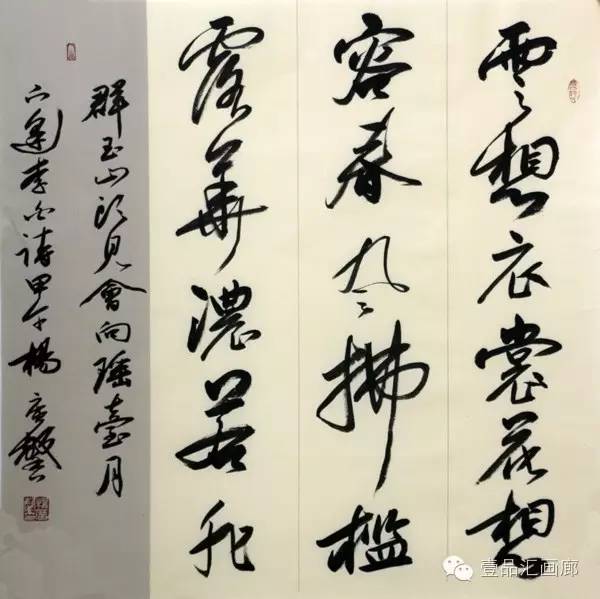 雲想衣裳花想
容春風拂檻
露華濃若非
群玉山頭見會向瑤臺月
下逢李白詩甲午楊
壹品汇画廊